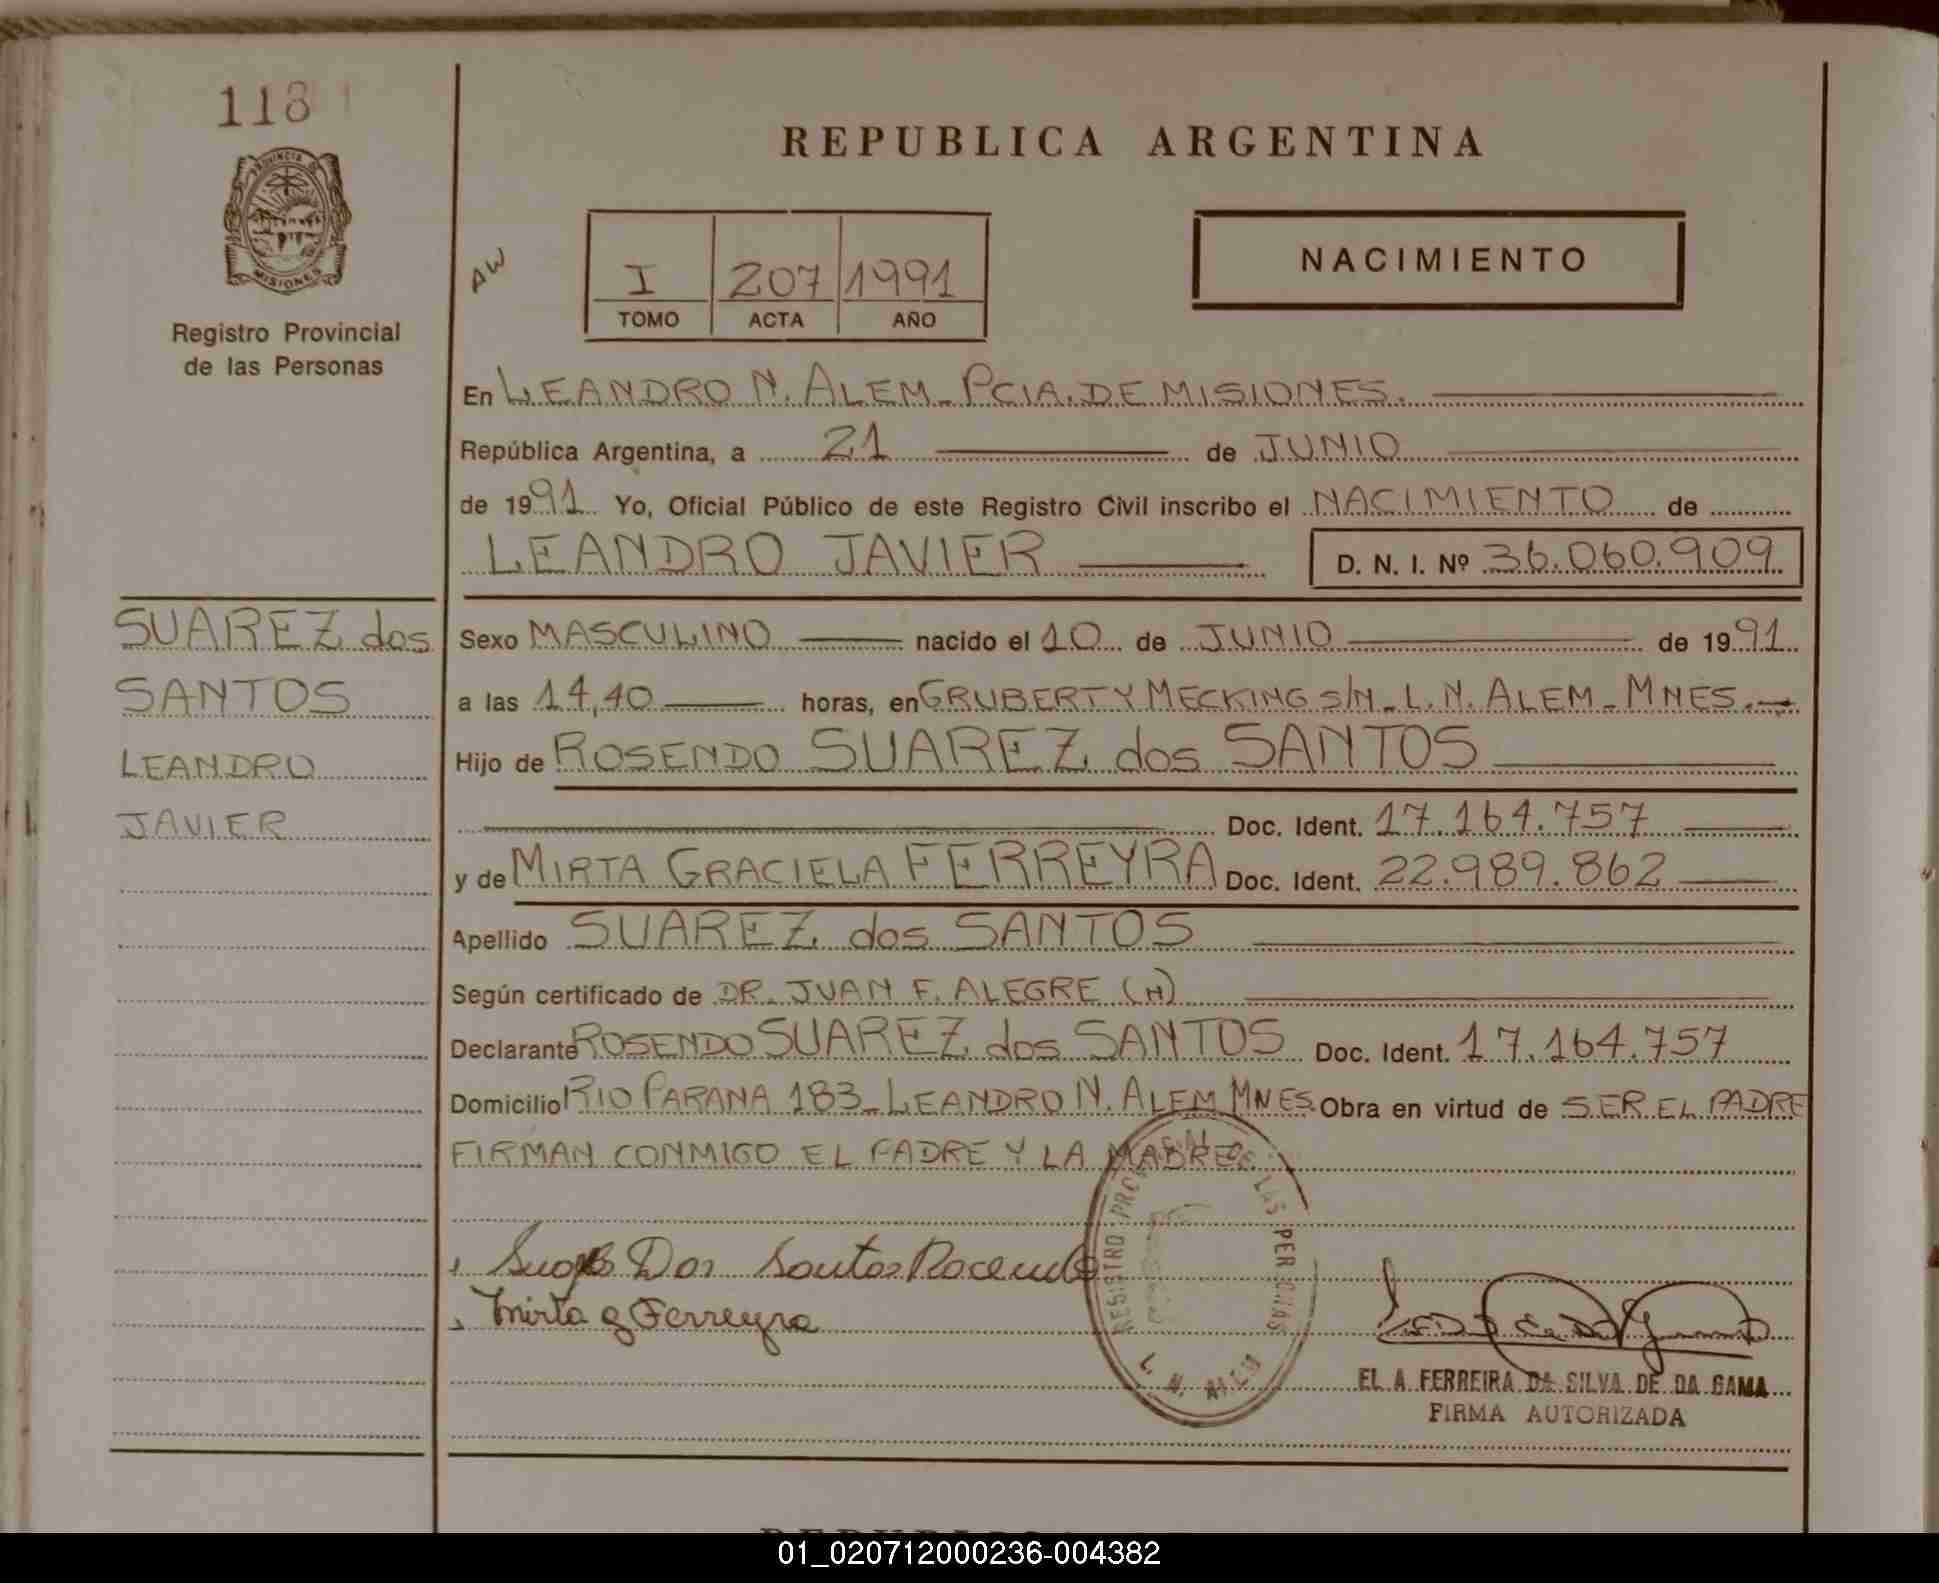 118
PROVINCIA DE
MISIONES
Registro Provincial
de las Personas
REPUBLICA ARGENTINA
AW
I 207 1991
TOMO ACTA AÑO
NACIMIENTO
En LEANDRO N. ALEM_PCIA.DE MISIONES.
República Argentina, a 21 de JUNIO
de 1991 Yo, Oficial Público de este Registro Civil inscribo el NACIMIENTO de
LEANDRO JAVIER D. N. I. Nº 36.060.909
SUAREZ dos
SANTOS
LEANDRO
JAVIER
Sexo MASCULINO nacido el 10 de JUNIO de 1991
a las 14,40 horas, en GRUBERT Y MECKING S/N_L.N.ALEM_MNES._
Hijo de ROSENDO SUAREZ dos SANTOS
Doc. Ident. 17.164.757
y de MIRTA GRACIELA FERREYRA Doc. Ident. 22.989.862
Apellido SUAREZ dos SANTOS
Según certificado de DR. JUAN F. ALEGRE (H)
Declarante ROSENDO SUAREZ dos SANTOS Doc. Ident. 17.164.757
Domicilio RIO PARANA 183_LEANDRO N. ALEM MNES. Obra en virtud de SER EL PADRE
FIRMAN CONMIGO EL PADRE Y LA MADRE.
Dos Santos Rocendo
Mirta g Ferreyra
REGISTRO PROVINCIAL DE LAS PERSONAS
L. N. ALEM
EL A FERREIRA DA SILVA DE DA GAMA
FIRMA AUTORIZADA
01_020712000236-004382